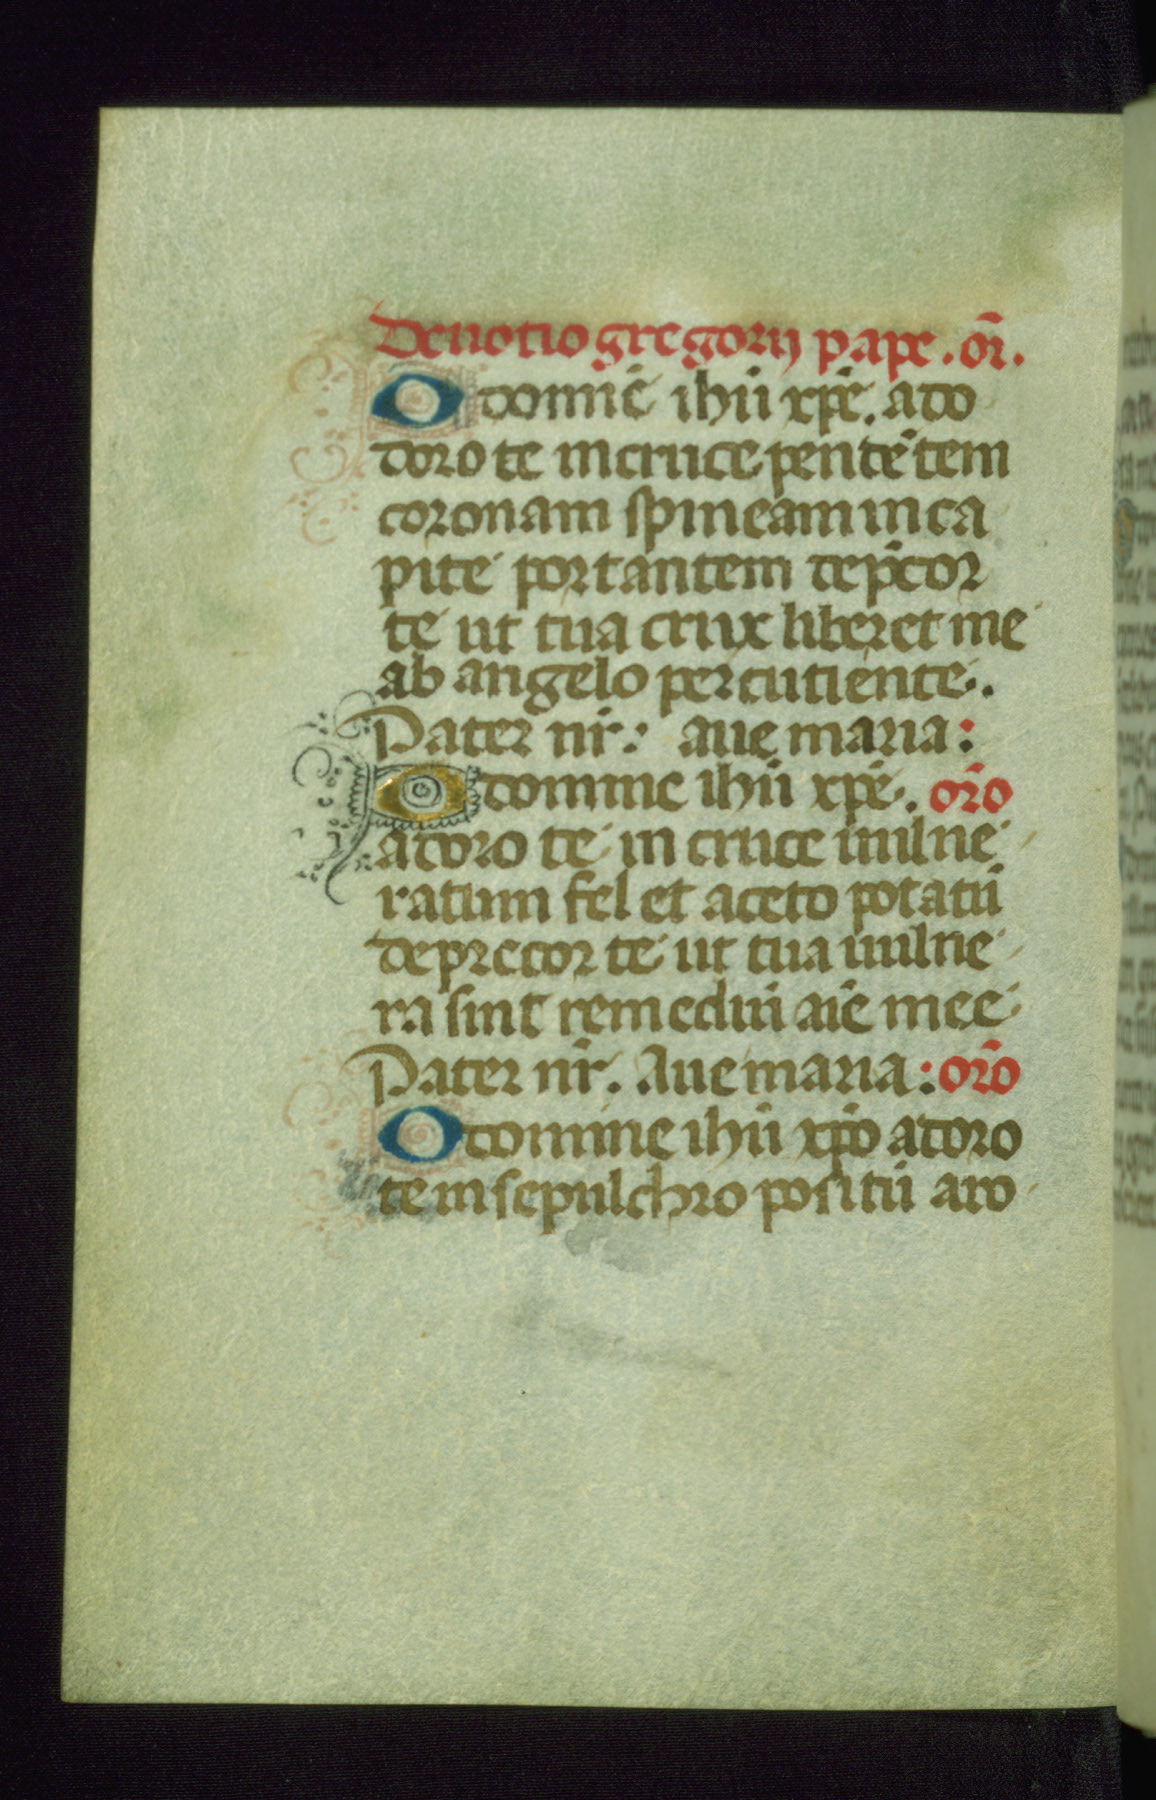 Deuotio gregorij pape. or̄.
O domīe ihū xp̄e. ado
doro te in cruce pentētem
coronam spineam in ca
pite portantem dep̄cor
te ut tua crux liberet me
ab angelo percutiente.
Pater nr̄: aue maria:
O domine ihū xp̄e. orō
adoro te in cruce uulne
ratum fel et aceto potatū
deprecor te ut tua uulne
ra sint remediū aīe mee
Pater nr̄. Aue maria: orō
O domine ihū xp̄o adoro
te in sepulchro positū aro